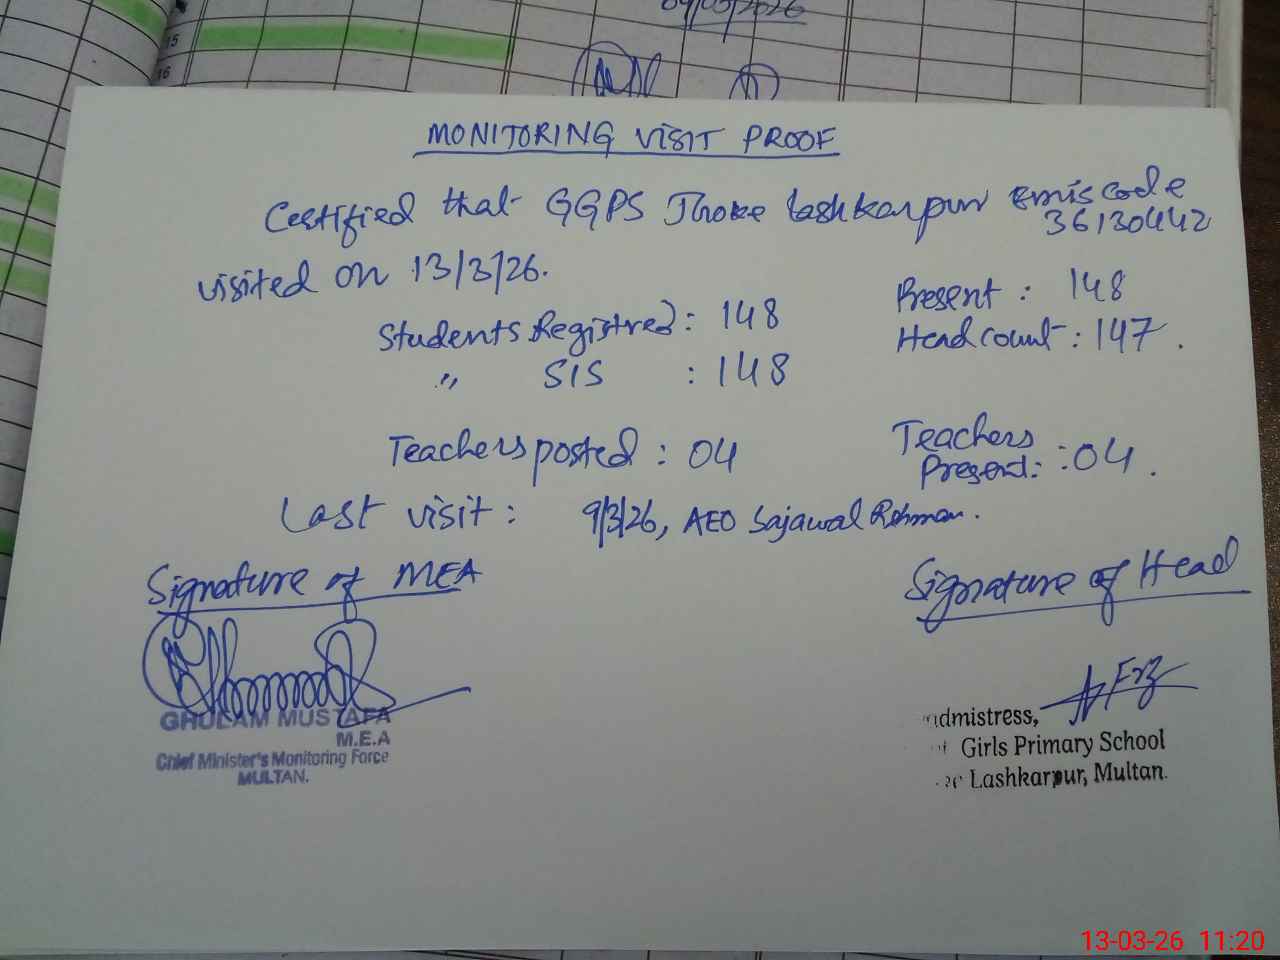 09/03/2026
15
16
MONITORING VISIT PROOF
Certified that GGPS Thoke Lashkarpur Emis code
36130442
visited on 13/3/26.
Students Registred: 148
Present: 148
Head count: 147.
" SIS : 148
Teachers posted: 04
Teachers
Present: :04.
Last visit: 9/3/26, AEO Sajawal Rehman.
Signature of MEA
Signature of Head
GHULAM MUSTAFA
M.E.A
Chief Minister's Monitoring Force
MULTAN.
admistress,
Girls Primary School
Lashkarpur, Multan.
13-03-26 11:20